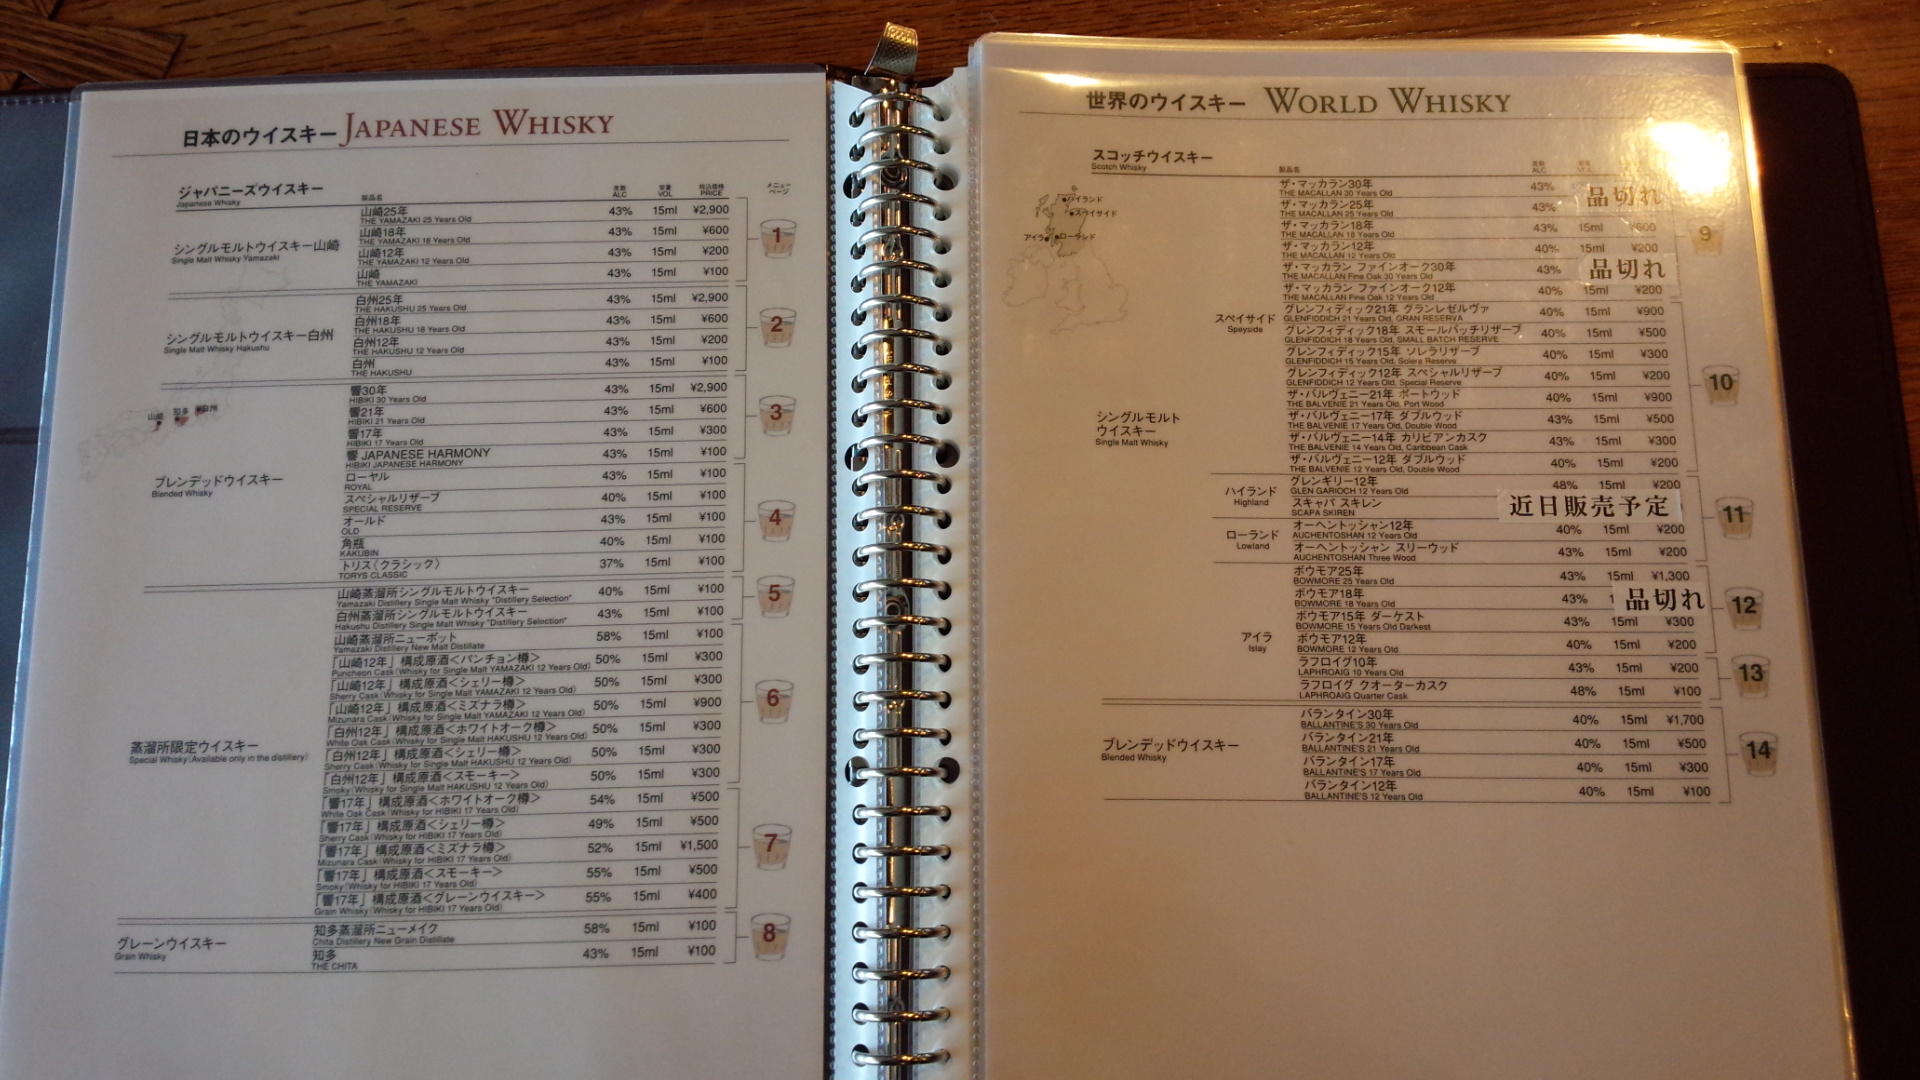 日本のウイスキー JAPANESE WHISKY
ジャパニーズウイスキー
Japanese Whisky
製品名 度数 ALC 容量 VOL 税込価格 PRICE メニューページ
シングルモルトウイスキー山崎
Single Malt Whisky Yamazaki
山崎25年 43% 15ml ¥2,900
THE YAMAZAKI 25 Years Old
山崎18年 43% 15ml ¥600
THE YAMAZAKI 18 Years Old
山崎12年 43% 15ml ¥200
THE YAMAZAKI 12 Years Old
山崎 43% 15ml ¥100
THE YAMAZAKI
1
シングルモルトウイスキー白州
Single Malt Whisky Hakushu
白州25年 43% 15ml ¥2,900
THE HAKUSHU 25 Years Old
白州18年 43% 15ml ¥600
THE HAKUSHU 18 Years Old
白州12年 43% 15ml ¥200
THE HAKUSHU 12 Years Old
白州 43% 15ml ¥100
THE HAKUSHU
2
山崎 知多 白州
ブレンデッドウイスキー
Blended Whisky
響30年 43% 15ml ¥2,900
HIBIKI 30 Years Old
響21年 43% 15ml ¥600
HIBIKI 21 Years Old
響17年 43% 15ml ¥300
HIBIKI 17 Years Old
響 JAPANESE HARMONY 43% 15ml ¥100
HIBIKI JAPANESE HARMONY
3
ローヤル 43% 15ml ¥100
ROYAL
スペシャルリザーブ 40% 15ml ¥100
SPECIAL RESERVE
オールド 43% 15ml ¥100
OLD
角瓶 40% 15ml ¥100
KAKUBIN
トリス〈クラシック〉 37% 15ml ¥100
TORYS CLASSIC
4
蒸溜所限定ウイスキー
Special Whisky(Available only in the distillery)
山崎蒸溜所シングルモルトウイスキー 40% 15ml ¥100
Yamazaki Distillery Single Malt Whisky "Distillery Selection"
白州蒸溜所シングルモルトウイスキー 43% 15ml ¥100
Hakushu Distillery Single Malt Whisky "Distillery Selection"
5
山崎蒸溜所ニューポット 58% 15ml ¥100
Yamazaki Distillery New Malt Distillate
「山崎12年」構成原酒<パンチョン樽> 50% 15ml ¥300
Puncheon Cask(Whisky for Single Malt YAMAZAKI 12 Years Old)
「山崎12年」構成原酒<シェリー樽> 50% 15ml ¥300
Sherry Cask(Whisky for Single Malt YAMAZAKI 12 Years Old)
「山崎12年」構成原酒<ミズナラ樽> 50% 15ml ¥900
Mizunara Cask(Whisky for Single Malt YAMAZAKI 12 Years Old)
「白州12年」構成原酒<ホワイトオーク樽> 50% 15ml ¥300
White Oak Cask(Whisky for Single Malt HAKUSHU 12 Years Old)
「白州12年」構成原酒<シェリー樽> 50% 15ml ¥300
Sherry Cask(Whisky for Single Malt HAKUSHU 12 Years Old)
「白州12年」構成原酒<スモーキー> 50% 15ml ¥300
Smoky(Whisky for Single Malt HAKUSHU 12 Years Old)
6
「響17年」構成原酒<ホワイトオーク樽> 54% 15ml ¥500
White Oak Cask(Whisky for HIBIKI 17 Years Old)
「響17年」構成原酒<シェリー樽> 49% 15ml ¥500
Sherry Cask(Whisky for HIBIKI 17 Years Old)
「響17年」構成原酒<ミズナラ樽> 52% 15ml ¥1,500
Mizunara Cask(Whisky for HIBIKI 17 Years Old)
「響17年」構成原酒<スモーキー> 55% 15ml ¥500
Smoky(Whisky for HIBIKI 17 Years Old)
「響17年」構成原酒<グレーンウイスキー> 55% 15ml ¥400
Grain Whisky(Whisky for HIBIKI 17 Years Old)
7
グレーンウイスキー
Grain Whisky
知多蒸溜所ニューメイク 58% 15ml ¥100
Chita Distillery New Grain Distillate
知多 43% 15ml ¥100
THE CHITA
8
世界のウイスキー WORLD WHISKY
スコッチウイスキー
Scotch Whisky
製品名 度数 ALC 容量 VOL
ハイランド
スペイサイド
アイラ ローランド
シングルモルト
ウイスキー
Single Malt Whisky
スペイサイド
Speyside
ザ・マッカラン30年 43% 品切れ
THE MACALLAN 30 Years Old
ザ・マッカラン25年 43%
THE MACALLAN 25 Years Old
ザ・マッカラン18年 43% 15ml ¥600
THE MACALLAN 18 Years Old
ザ・マッカラン12年 40% 15ml ¥200
THE MACALLAN 12 Years Old
ザ・マッカラン ファインオーク30年 43% 品切れ
THE MACALLAN Fine Oak 30 Years Old
ザ・マッカラン ファインオーク12年 40% 15ml ¥200
THE MACALLAN Fine Oak 12 Years Old
9
グレンフィディック21年 グランレゼルヴァ 40% 15ml ¥900
GLENFIDDICH 21 Years Old, GRAN RESERVA
グレンフィディック18年 スモールバッチリザーブ 40% 15ml ¥500
GLENFIDDICH 18 Years Old, SMALL BATCH RESERVE
グレンフィディック15年 ソレラリザーブ 40% 15ml ¥300
GLENFIDDICH 15 Years Old, Solera Reserve
グレンフィディック12年 スペシャルリザーブ 40% 15ml ¥200
GLENFIDDICH 12 Years Old, Special Reserve
ザ・バルヴェニー21年 ポートウッド 40% 15ml ¥900
THE BALVENIE 21 Years Old, Port Wood
ザ・バルヴェニー17年 ダブルウッド 43% 15ml ¥500
THE BALVENIE 17 Years Old, Double Wood
ザ・バルヴェニー14年 カリビアンカスク 43% 15ml ¥300
THE BALVENIE 14 Years Old, Caribbean Cask
ザ・バルヴェニー12年 ダブルウッド 40% 15ml ¥200
THE BALVENIE 12 Years Old, Double Wood
10
ハイランド
Highland
グレンギリー12年 48% 15ml ¥200
GLEN GARIOCH 12 Years Old
スキャパ スキレン 近日販売予定
SCAPA SKIREN
ローランド
Lowland
オーヘントッシャン12年 40% 15ml ¥200
AUCHENTOSHAN 12 Years Old
オーヘントッシャン スリーウッド 43% 15ml ¥200
AUCHENTOSHAN Three Wood
11
アイラ
Islay
ボウモア25年 43% 15ml ¥1,300
BOWMORE 25 Years Old
ボウモア18年 43% 1 品切れ
BOWMORE 18 Years Old
ボウモア15年 ダーケスト 43% 15ml ¥300
BOWMORE 15 Years Old Darkest
ボウモア12年 40% 15ml ¥200
BOWMORE 12 Years Old
12
ラフロイグ10年 43% 15ml ¥200
LAPHROAIG 10 Years Old
ラフロイグ クオーターカスク 48% 15ml ¥100
LAPHROAIG Quarter Cask
13
ブレンデッドウイスキー
Blended Whisky
バランタイン30年 40% 15ml ¥1,700
BALLANTINE'S 30 Years Old
バランタイン21年 40% 15ml ¥500
BALLANTINE'S 21 Years Old
バランタイン17年 40% 15ml ¥300
BALLANTINE'S 17 Years Old
バランタイン12年 40% 15ml ¥100
BALLANTINE'S 12 Years Old
14